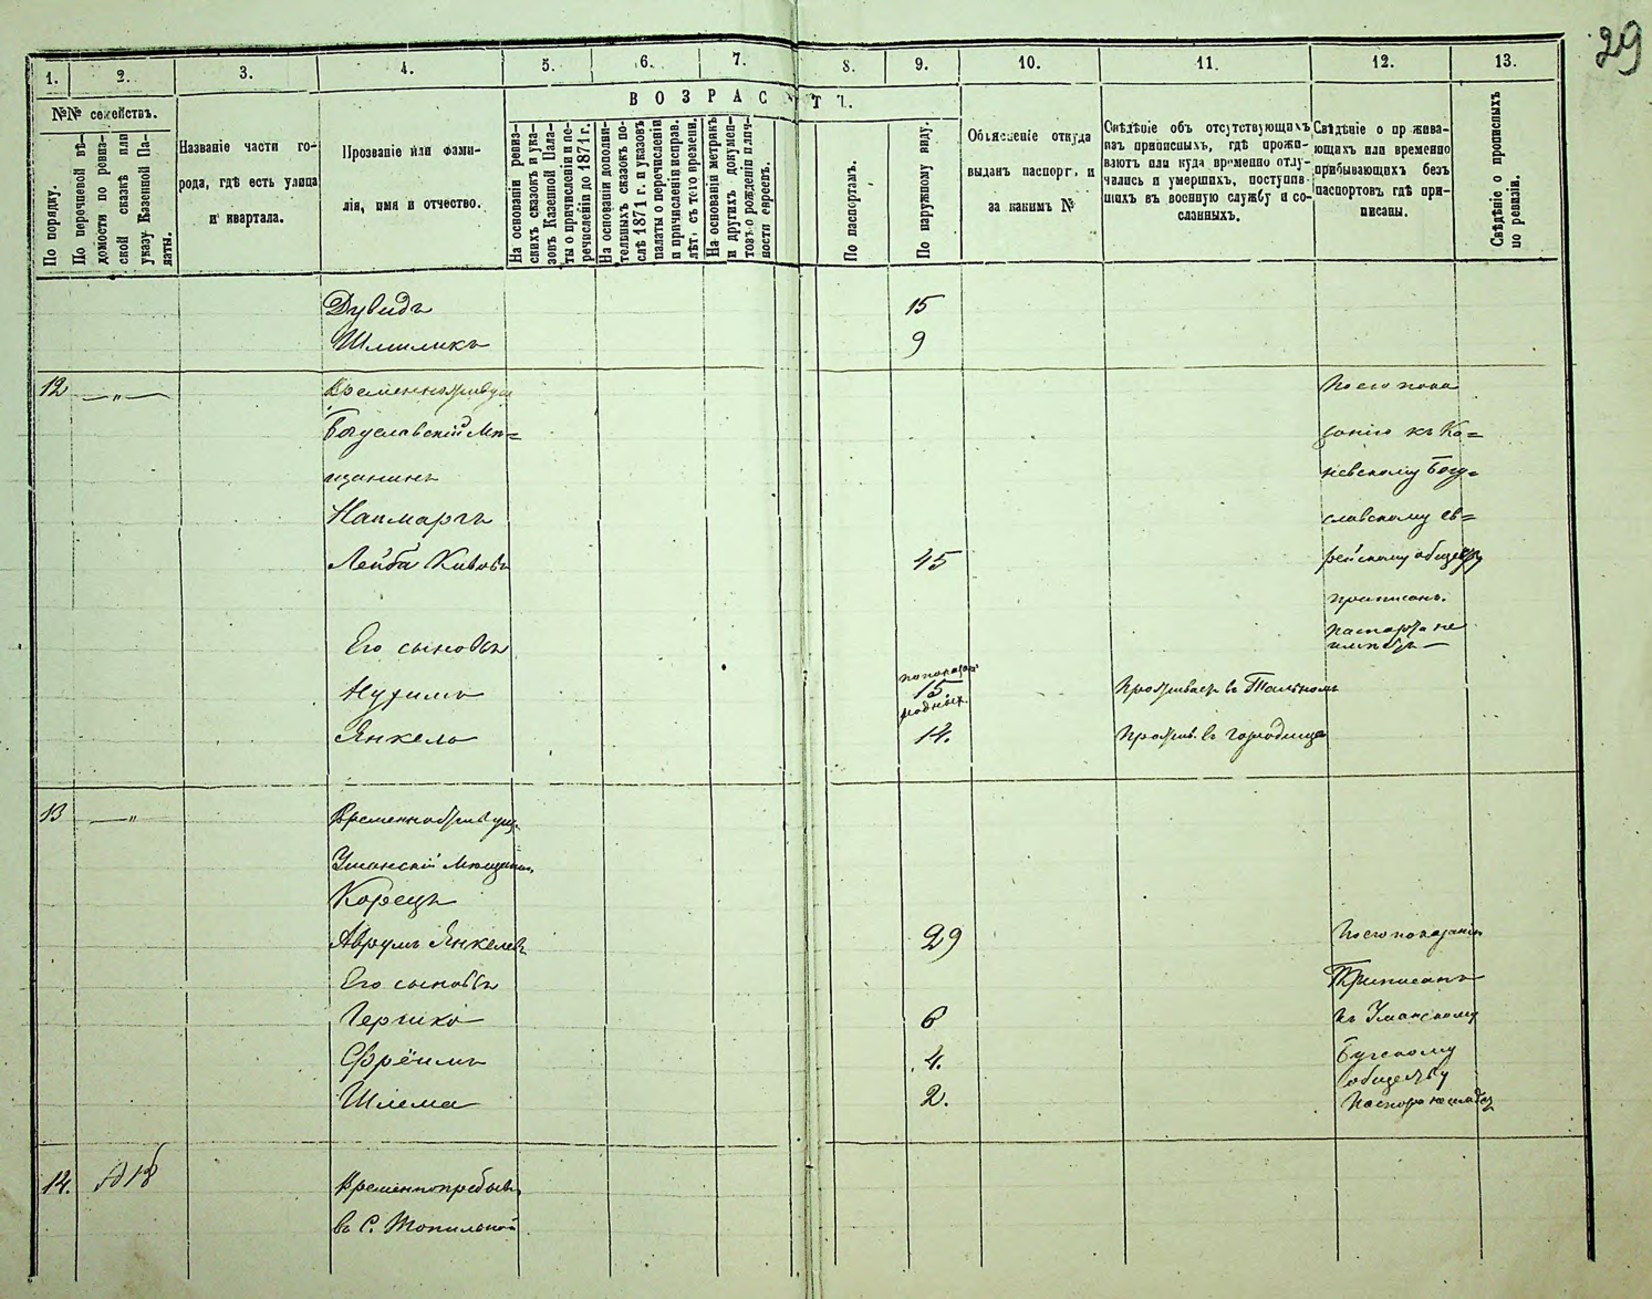 29
1. 2. 3. 4. 5. 6. 7. 8. 9. 10. 11. 12. 13.
№№ семействъ.
По порядку.
По перечневой вѣ-
домости по ревиз-
ской сказкѣ или
указу Казенной Па-
латы.
Названіе части го-
рода, гдѣ есть улица
и квартала.
Прозваніе или фами-
лія, имя и отчество.
ВОЗРАСТЪ.
На основаніи ревиз-
скихъ сказокъ и ука-
зовъ Казенной Пала-
ты о причисленіи и пе-
речисленіи до 1871 г.
На основаніи дополни-
тельныхъ сказокъ по-
слѣ 1871 г. и указовъ
палаты о перечисленіи
и причисленіи исправ.
лѣт. съ того времени.
На основаніи метрикъ
и другихъ докумен-
товъ о рожденіи и лич-
ности евреевъ.
По паспортамъ.
По наружному виду.
Объясненіе откуда
выданъ паспорт. и
за какимъ №
Свѣдѣніе объ отсутствующихъ
изъ приписныхъ, гдѣ прожи-
ваютъ или куда временно отлу-
чались и умершихъ, поступив-
шихъ въ военную службу и со-
сланныхъ.
Свѣдѣніе о прожива-
ющихъ или временно
прибывающихъ безъ
паспортовъ гдѣ при-
писаны.
Свѣдѣніе о прописныхъ
по ревизіи.
Дувидъ 15
Шмиликъ 9
12 — „ — Временно живущ По его пока
Богуславскій Мѣ= занію къ Ка=
щанинъ невскому Богу=
славскому ев=
Лейба Кивовъ 45 рейскому обществу
приписанъ.
Его сыновья паспорта не
имѣетъ —
Нухимъ 15 Проживаетъ въ Тальномъ
родныхъ.
Янкель 14. Прожив. въ Городище
13 — „ Временно живущ.
Уманскій Мѣщанинъ
Корецъ
Аврумъ Янкелевъ 29 По его показанію
Его сыновья Приписанъ
Гершко 6 къ Уманскому
Фроимъ 4. Бугскому
обществу
Шлема 2.
14. Временно пребыв.
въ С. Топильной